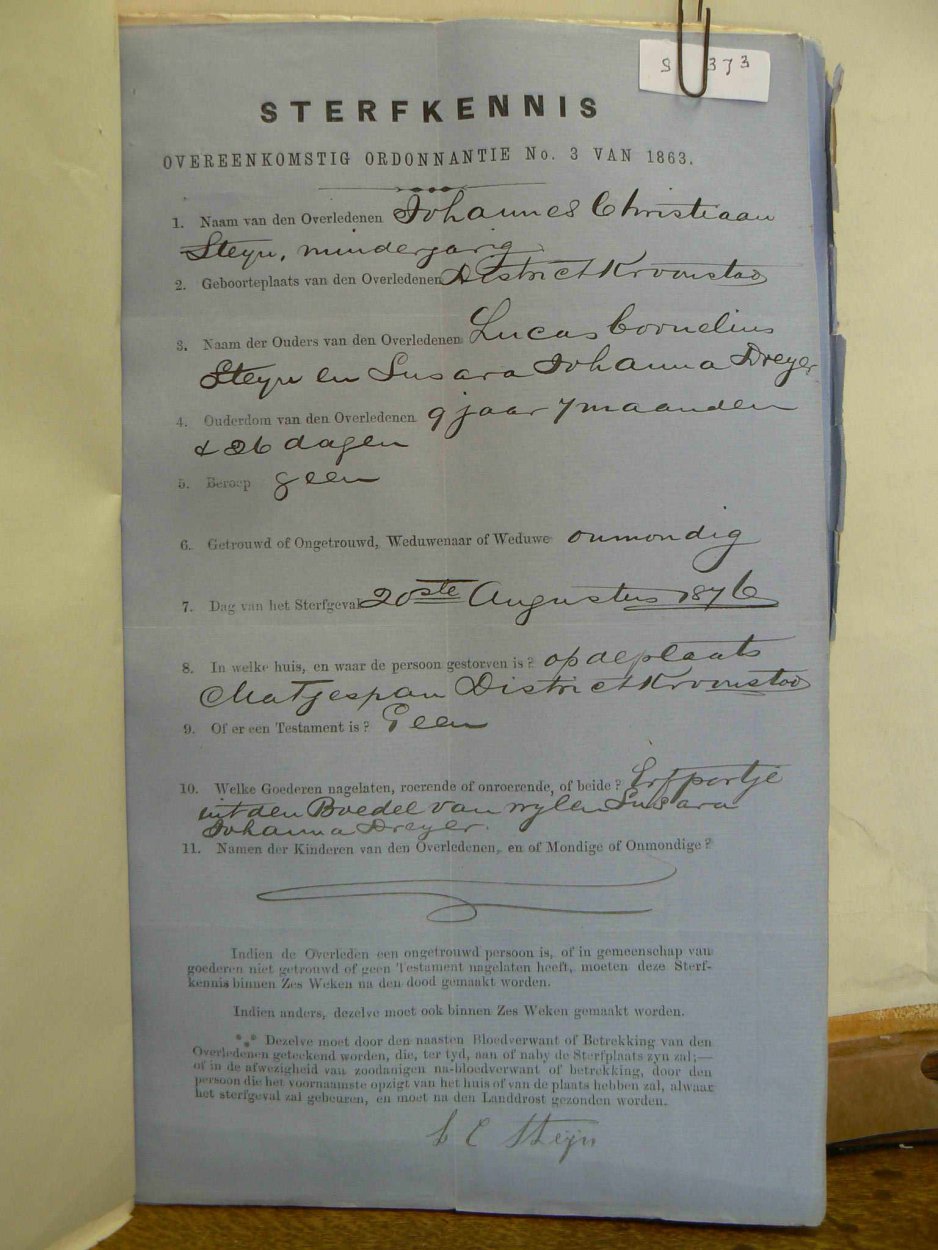 S 373
STERFKENNIS
OVEREENKOMSTIG ORDONNANTIE No. 3 VAN 1863.
1. Naam van den Overledenen Johannes Christiaan
Steyn, minderjarig
2. Geboorteplaats van den Overledenen District Kroonstad
3. Naam der Ouders van den Overledenen Lucas Cornelius
Steyn en Susara Johanna Dreyer
4. Ouderdom van den Overledenen 9 jaar 7 maanden
& 26 dagen
5. Beroep geen
6. Getrouwd of Ongetrouwd, Weduwenaar of Weduwe onmondig
7. Dag van het Sterfgeval 20ste Augustus 1876
8. In welke huis, en waar de persoon gestorven is? op de plaats
Matjespan District Kroonstad
9. Of er een Testament is? Geen
10. Welke Goederen nagelaten, roerende of onroerende, of beide? Erfportje
uit den Boedel van wylen Susara
Johanna Dreyer.
11. Namen der Kinderen van den Overledenen, en of Mondige of Onmondige?
Indien de Overleden een ongetrouwd persoon is, of in gemeenschap van
goederen niet getrouwd of geen Testament nagelaten heeft, moeten deze Sterf-
kennis binnen Zes Weken na den dood gemaakt worden.
Indien anders, dezelve moet ook binnen Zes Weken gemaakt worden.
Dezelve moet door den naasten Bloedverwant of Betrekking van den
Overledenen geteekend worden, die, ter tyd, aan of naby de Sterfplaats zyn zal;—
of in de afwezigheid van zoodanigen na-bloedverwant of betrekking, door den
persoon die het voornaamste opzigt van het huis of van de plaats hebben zal, alwaar
het sterfgeval zal gebeuren, en moet na den Landdrost gezonden worden.
L C Steyn